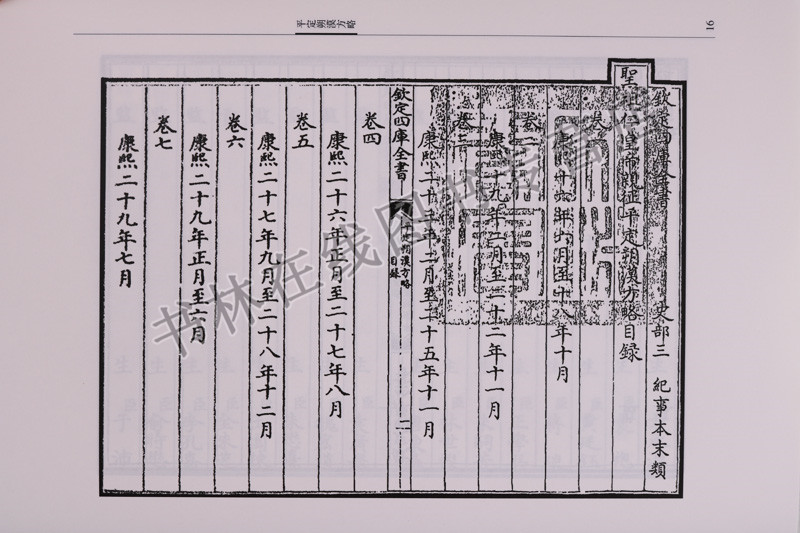 平定朔漠方略
16
欽定四庫全書 史部三 紀事本末類
聖祖仁皇帝親征平定朔漠方略目錄
卷一
康熙十六年六月至十八年十月
卷二
康熙十九年二月至二十二年十一月
卷三
康熙二十三年二月至二十五年十一月
欽定四庫全書
漠方略
目錄
二
卷四
康熙二十六年正月至二十七年八月
卷五
康熙二十七年九月至二十八年十二月
卷六
康熙二十九年正月至六月
卷七
康熙二十九年七月
书林在线图书专营店